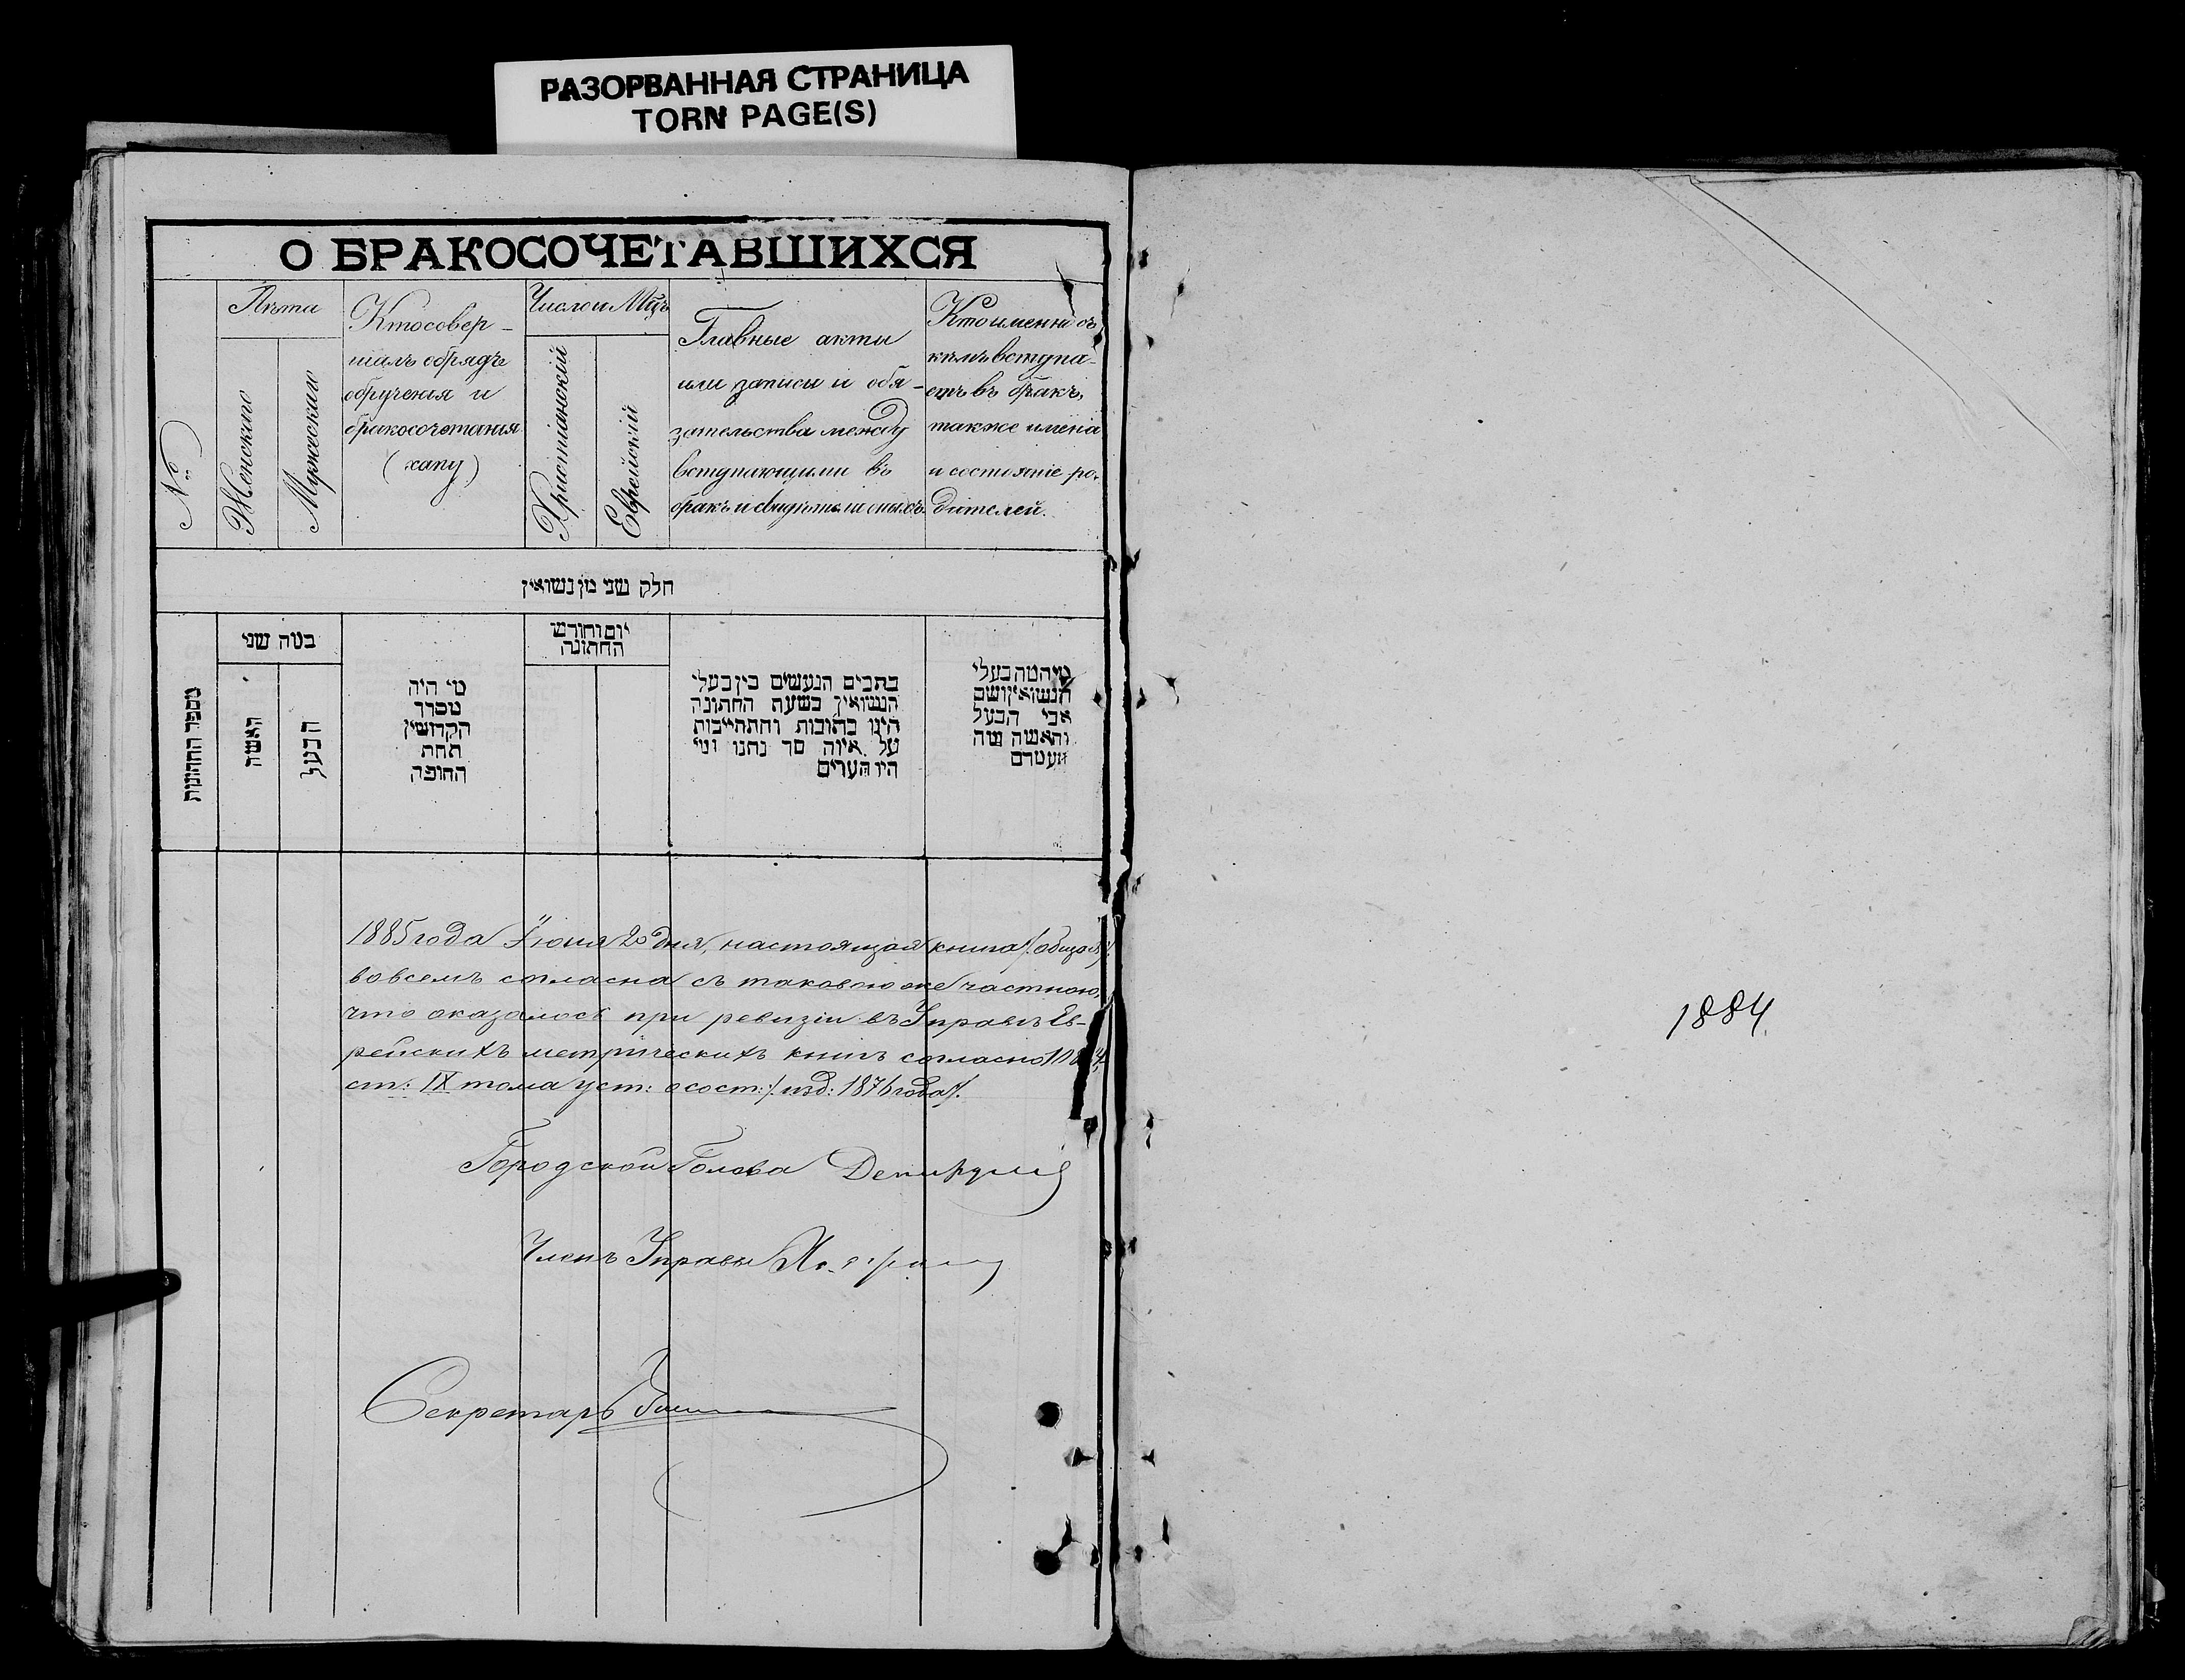 РАЗОРВАННАЯ СТРАНИЦА
TORN PAGE(S)
О БРАКОСОЧЕТАВШИХСЯ
№
Лѣта
Женскаго
Мужескаго
Кто совер-
шалъ обрядъ
обрученія и
бракосочетанія
(хапу)
Число и Мцъ
Христіанскій
Еврейскій
Главные акты
или записи и обя-
зательства между
вступающими въ
бракъ и свидѣтели оныхъ
Кто именно съ
кѣмъ вступа-
етъ въ бракъ,
также имена
и состояніе ро-
дителей.
חלק שני מן נשואין
מספר החתונות
כמה שני
האשה
הבעל
מי היה
מסדר
הקדושין
תחת
החופה
יום וחודש
החתונה
כתבים הנעשים בין בעלי
הנשואין בשעת החתונה
היינו כתובות והתחייבות
על איזה סך נתנו ומי
היו העדים
מיהמה בעלי
הנשואין ושם
אבי הבעל
והאשה ומה
מעמדם
1885 года Іюня 20 дня, настоящая книга /:общая:/
во всемъ согласна съ таковою же частною,
что оказалось при ревизіи въ Управѣ Ев-
рейскихъ метрическихъ книгъ согласно
ст: IX тома уст: о сост: /:изд: 1876 года/.
Городской Голова
Членъ Управы
Секретарь
1884